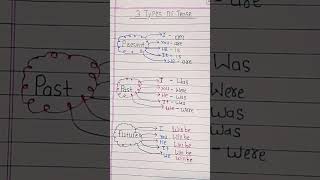 3 Types of Tense
Present
I - am
You - are
He - is
It - is
We - are
Past
I - Was
You - Were
He - Was
It - Was
We - Were
Future
I Will be
You Will be
He Will be
It Will be
We Will be
Past
Was
Were
Was
Was
- Were